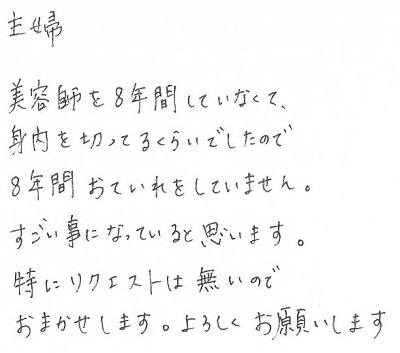 主婦
美容師を8年間していなくて、
身内を切ってるくらいでしたので
8年間おていれをしていません。
すごい事になっていると思います。
特にリクエストは無いので
おまかせします。よろしくお願いします